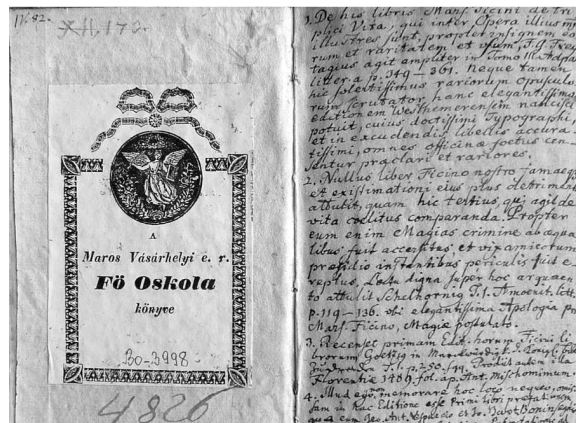 XII.173.
A
Maros Vásárhelyi e. r.
Fö Oskola
könyve
Bo-3998.
4826
1. De his libris Mars. Ficini de tri
plici Vita, qui inter Opera illius
illustres sunt, propter insignem
rum et raritatem et usum, J. G.
tagius agit ampliter in Tomo
littera p. 349 - 361. Neque tamen
hic solertissimus rariorum opusculo
rum scrutator, hanc elegantissimam
editionem Westhemerensem nancisci
potuit, cuius doctissimi Typographi,
et in excudendis libellis accura
tissimi, omnes officinæ foetus cen
sentur præclari et rariores.
2. Nullus liber Ficino nostro famaeq
et existimationi eius plus detrimen
attulit, quam hic tertius, qui agit de
vita coelitus comparanda. Propter
eum enim Magiæ crimine ab æqua
libus fuit accusatus et vix amicorum
præsidio instantibus periculis fuit e
reptus. Lectu digna super hoc argumen
to attulit Schelhornig T. I. Amoenit. litt.
p. 119 - 136. ubi elegantissima Apologia pro
Mars. Ficino, Magiæ postulato.
3. Recenset primam Edit. horum Ficini li
brorum
Florentiæ 1489. fol. ap. Ant. Mischominum.
4. Illud ego memorare hoc loco nequeo,
in hac Editione esse Primi libri